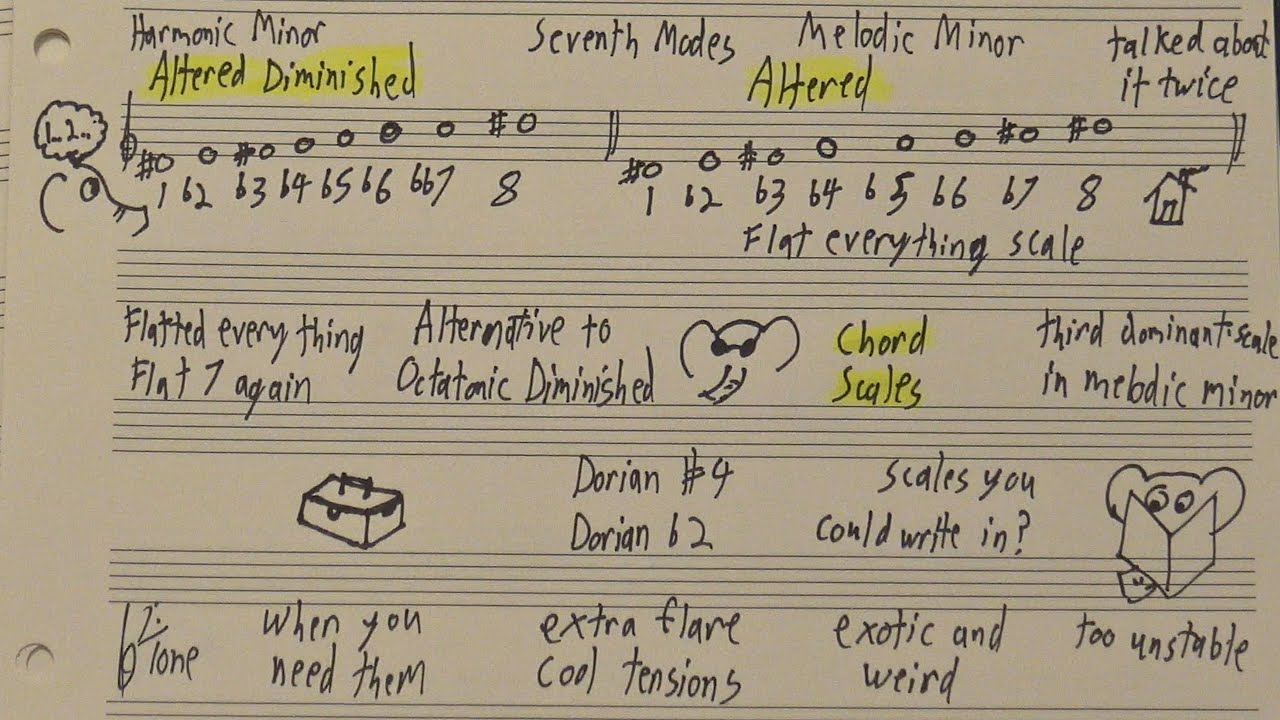 Harmonic Minor
Altered Diminished
Seventh Modes
Melodic Minor
Altered
talked about
it twice
1..2...
# # #
1 b2 b3 b4 b5 b6 bb7 8
# # # #
1 b2 b3 b4 b5 b6 b7 8
Flat everything scale
Flatted everything
Flat 7 again
Alternative to
Octatonic Diminished
Chord
Scales
third dominant scale
in melodic minor
Dorian #4
Dorian b2
scales you
could write in?
12
Tone
when you
need them
extra flare
cool tensions
exotic and
weird
too unstable